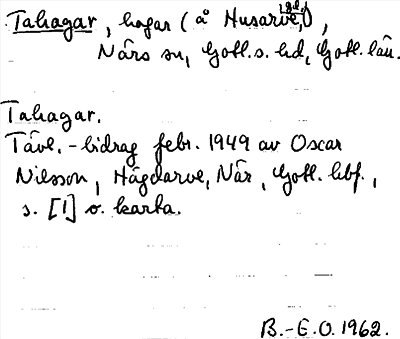 Tahagar, hagar (å Husarve, gd.),
Närs sn, Gotl. s. hd, Gotl. län.
Tahagar.
Tävl.-bidrag febr. 1949 av Oscar
Nilsson, Hägdarve, När, Gotl. hbf.,
s. [1] o. karta.
B.-E.O. 1962.